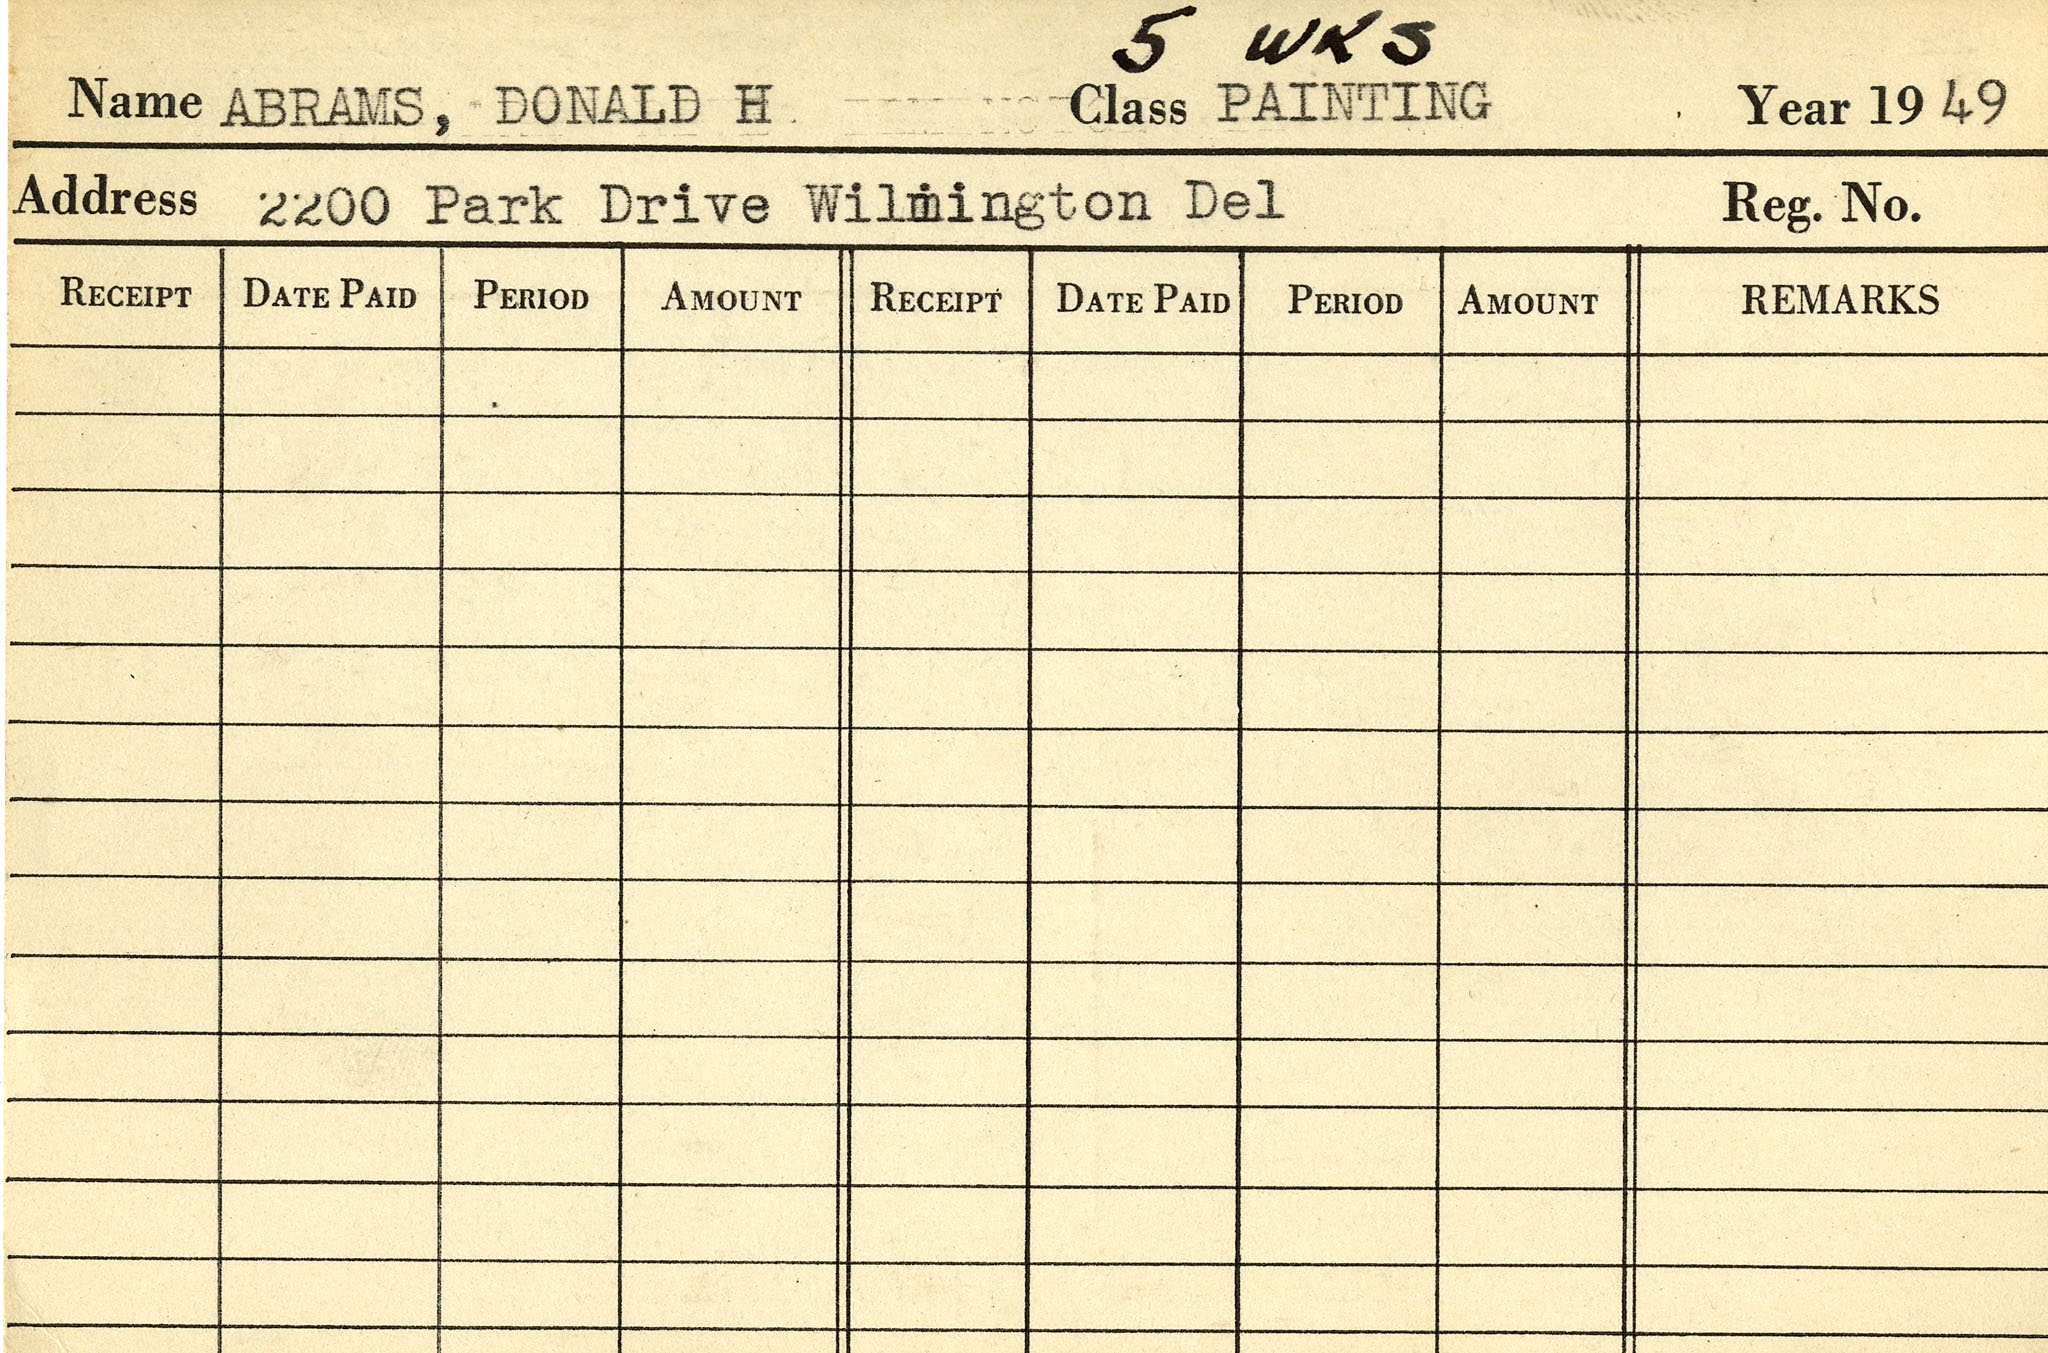 5 WKS
Name ABRAMS, DONALD H Class PAINTING Year 1949
Address 2200 Park Drive Wilmington Del Reg. No.
RECEIPT DATE PAID PERIOD AMOUNT RECEIPT DATE PAID PERIOD AMOUNT REMARKS